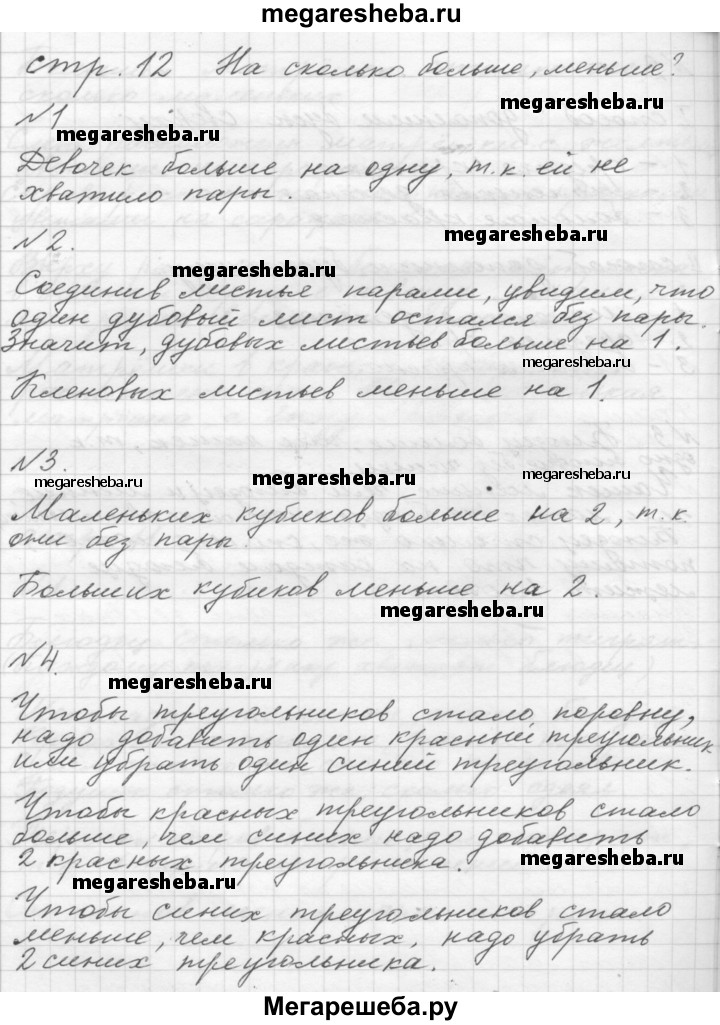 megaresheba.ru
стр. 12 На сколько больше, меньше?
megaresheba.ru
№1
megaresheba.ru
Девочек больше на одну, т.к. ей не
хватило пары.
№2.
megaresheba.ru
megaresheba.ru
Соединив листья парами, увидим, что
один дубовый лист остался без пары.
Значит, дубовых листьев больше на 1.
megaresheba.ru
Кленовых листьев меньше на 1.
№3.
megaresheba.ru
megaresheba.ru
megaresheba.ru
Маленьких кубиков больше на 2, т.к.
они без пары.
Больших кубиков меньше на 2.
megaresheba.ru
№4.
megaresheba.ru
Чтобы треугольников стало поровну,
надо добавить один красный треугольник
или убрать один синий треугольник.
Чтобы красных треугольников стало
больше, чем синих надо добавить
2 красных треугольника.
megaresheba.ru
megaresheba.ru
Чтобы синих треугольников стало
меньше, чем красных, надо убрать
2 синих треугольника.
Мегарешеба.ру